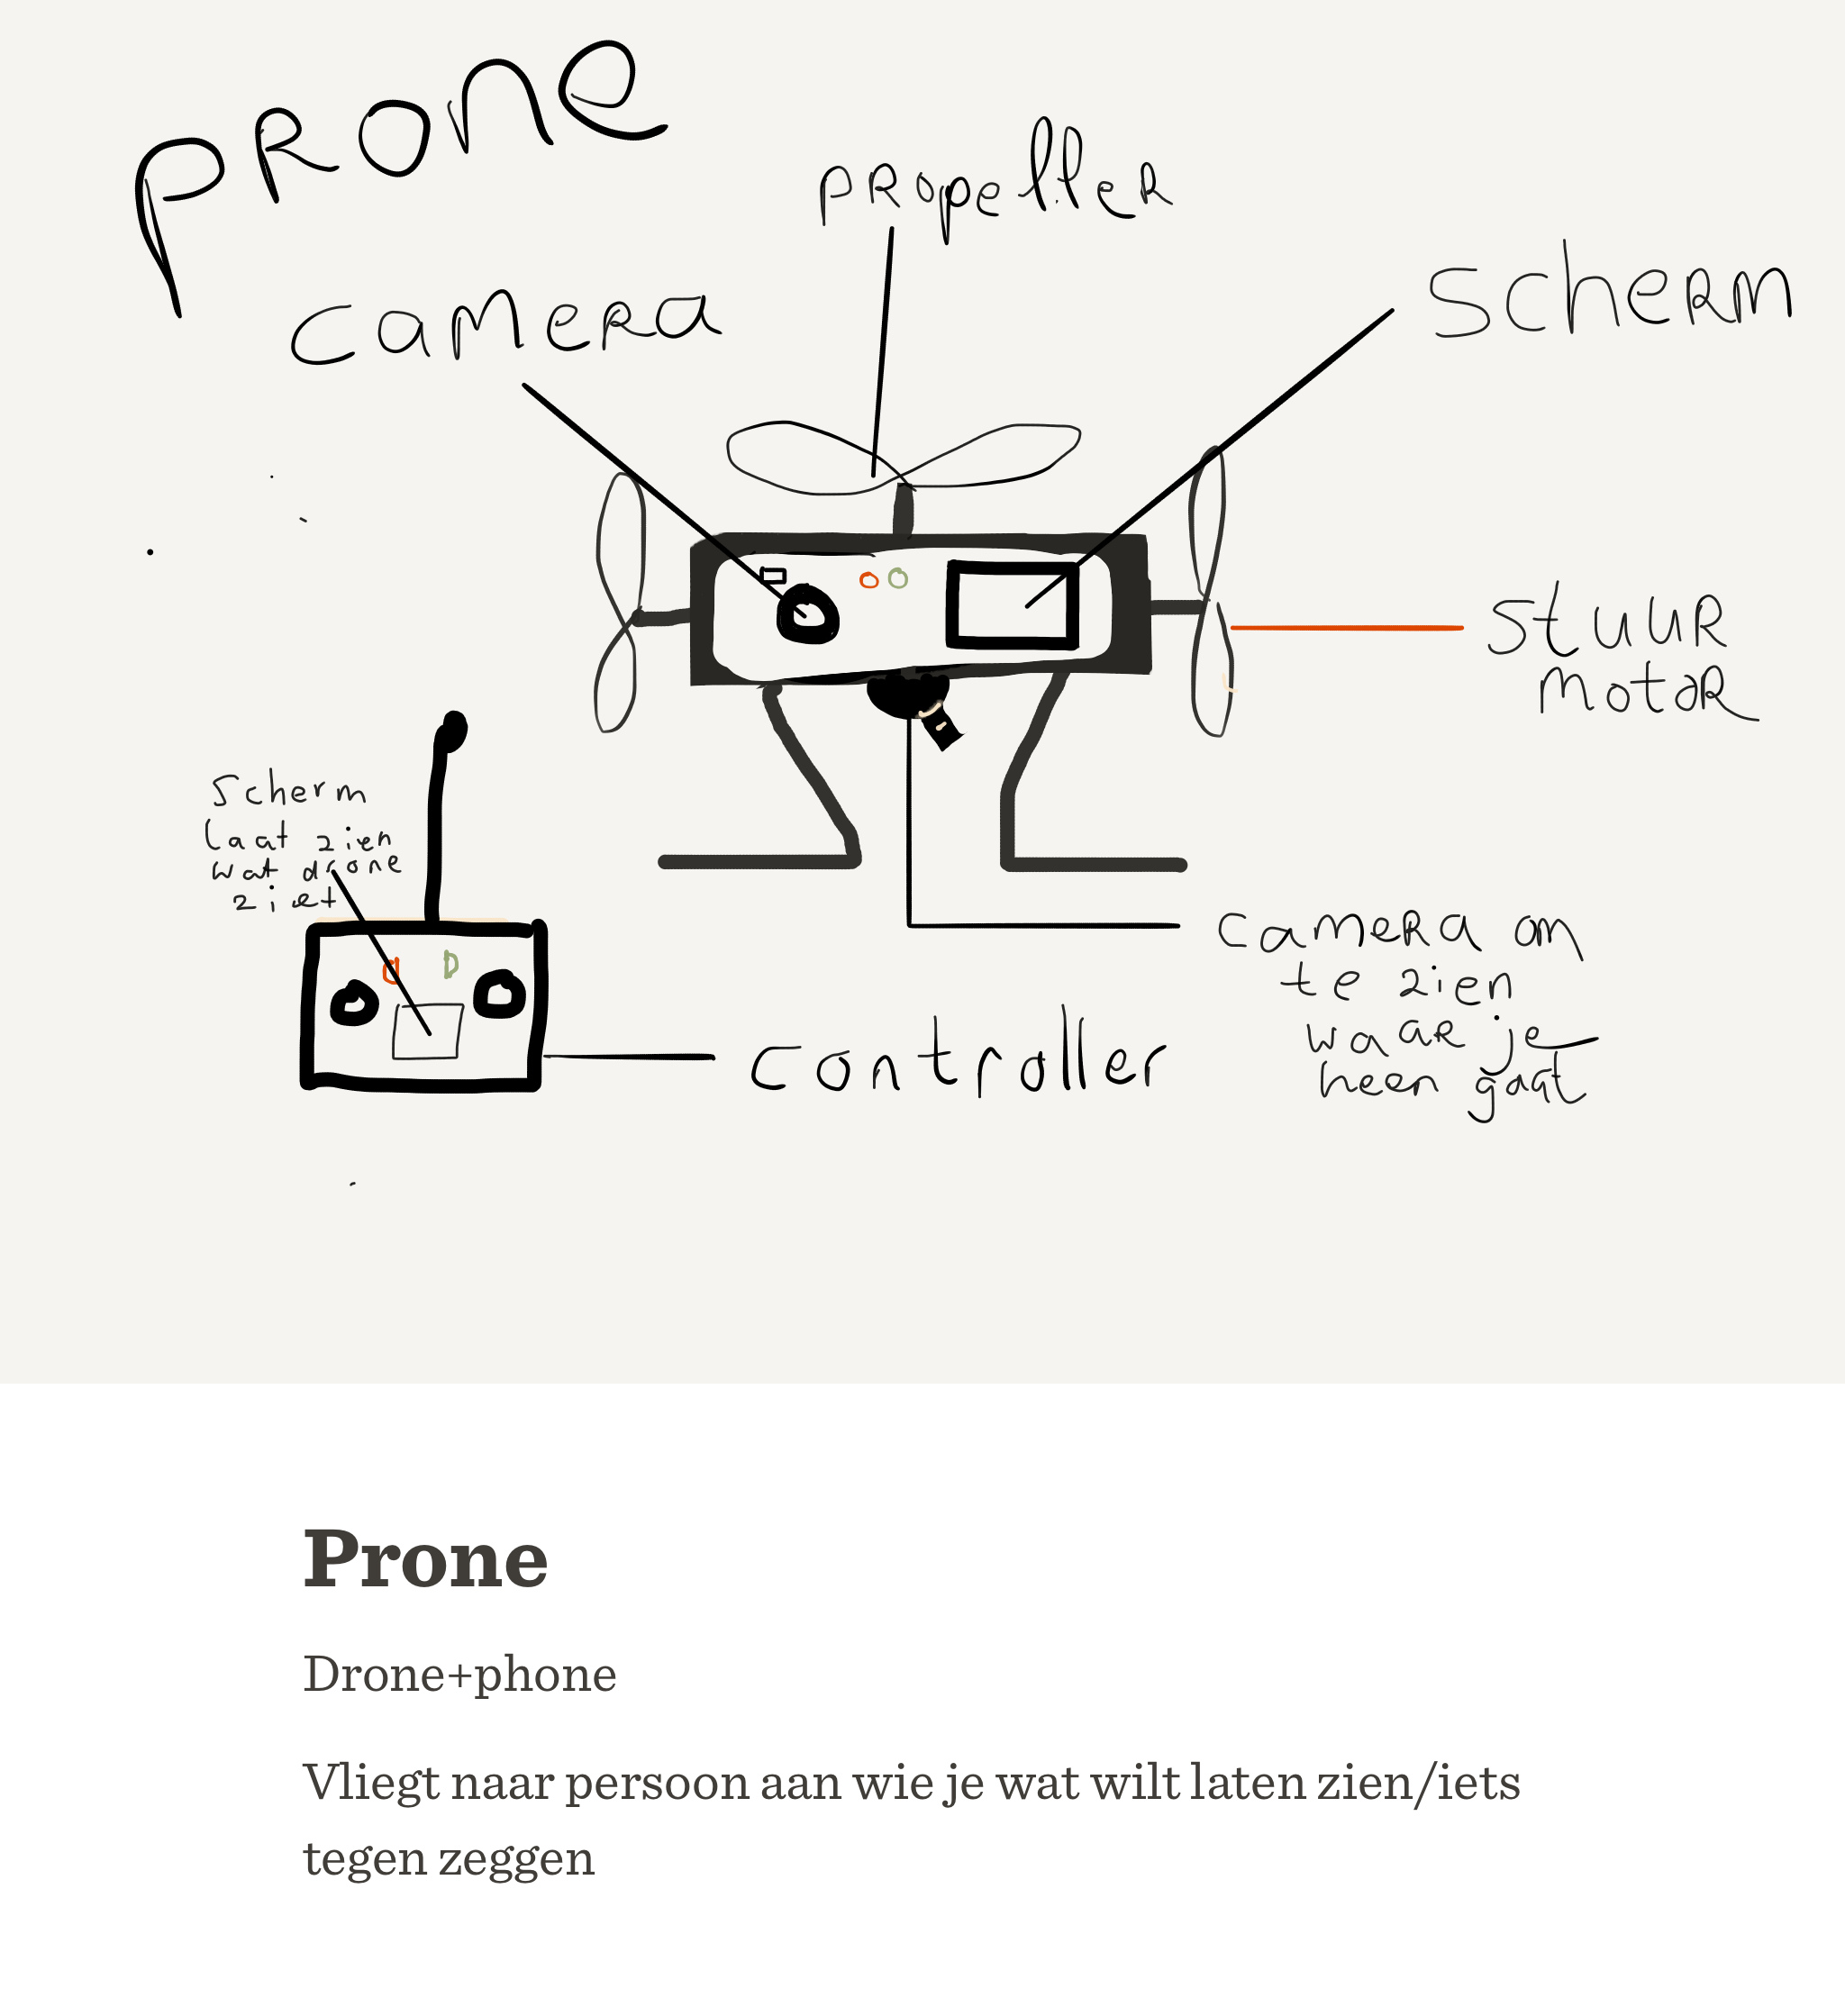 PRONE
propeller
camera
scherm
stuur
motor
scherm
laat zien
wat drone
ziet
camera om
te zien
waar je
heen gaat
controller
Prone
Drone+phone
Vliegt naar persoon aan wie je wat wilt laten zien/iets
tegen zeggen